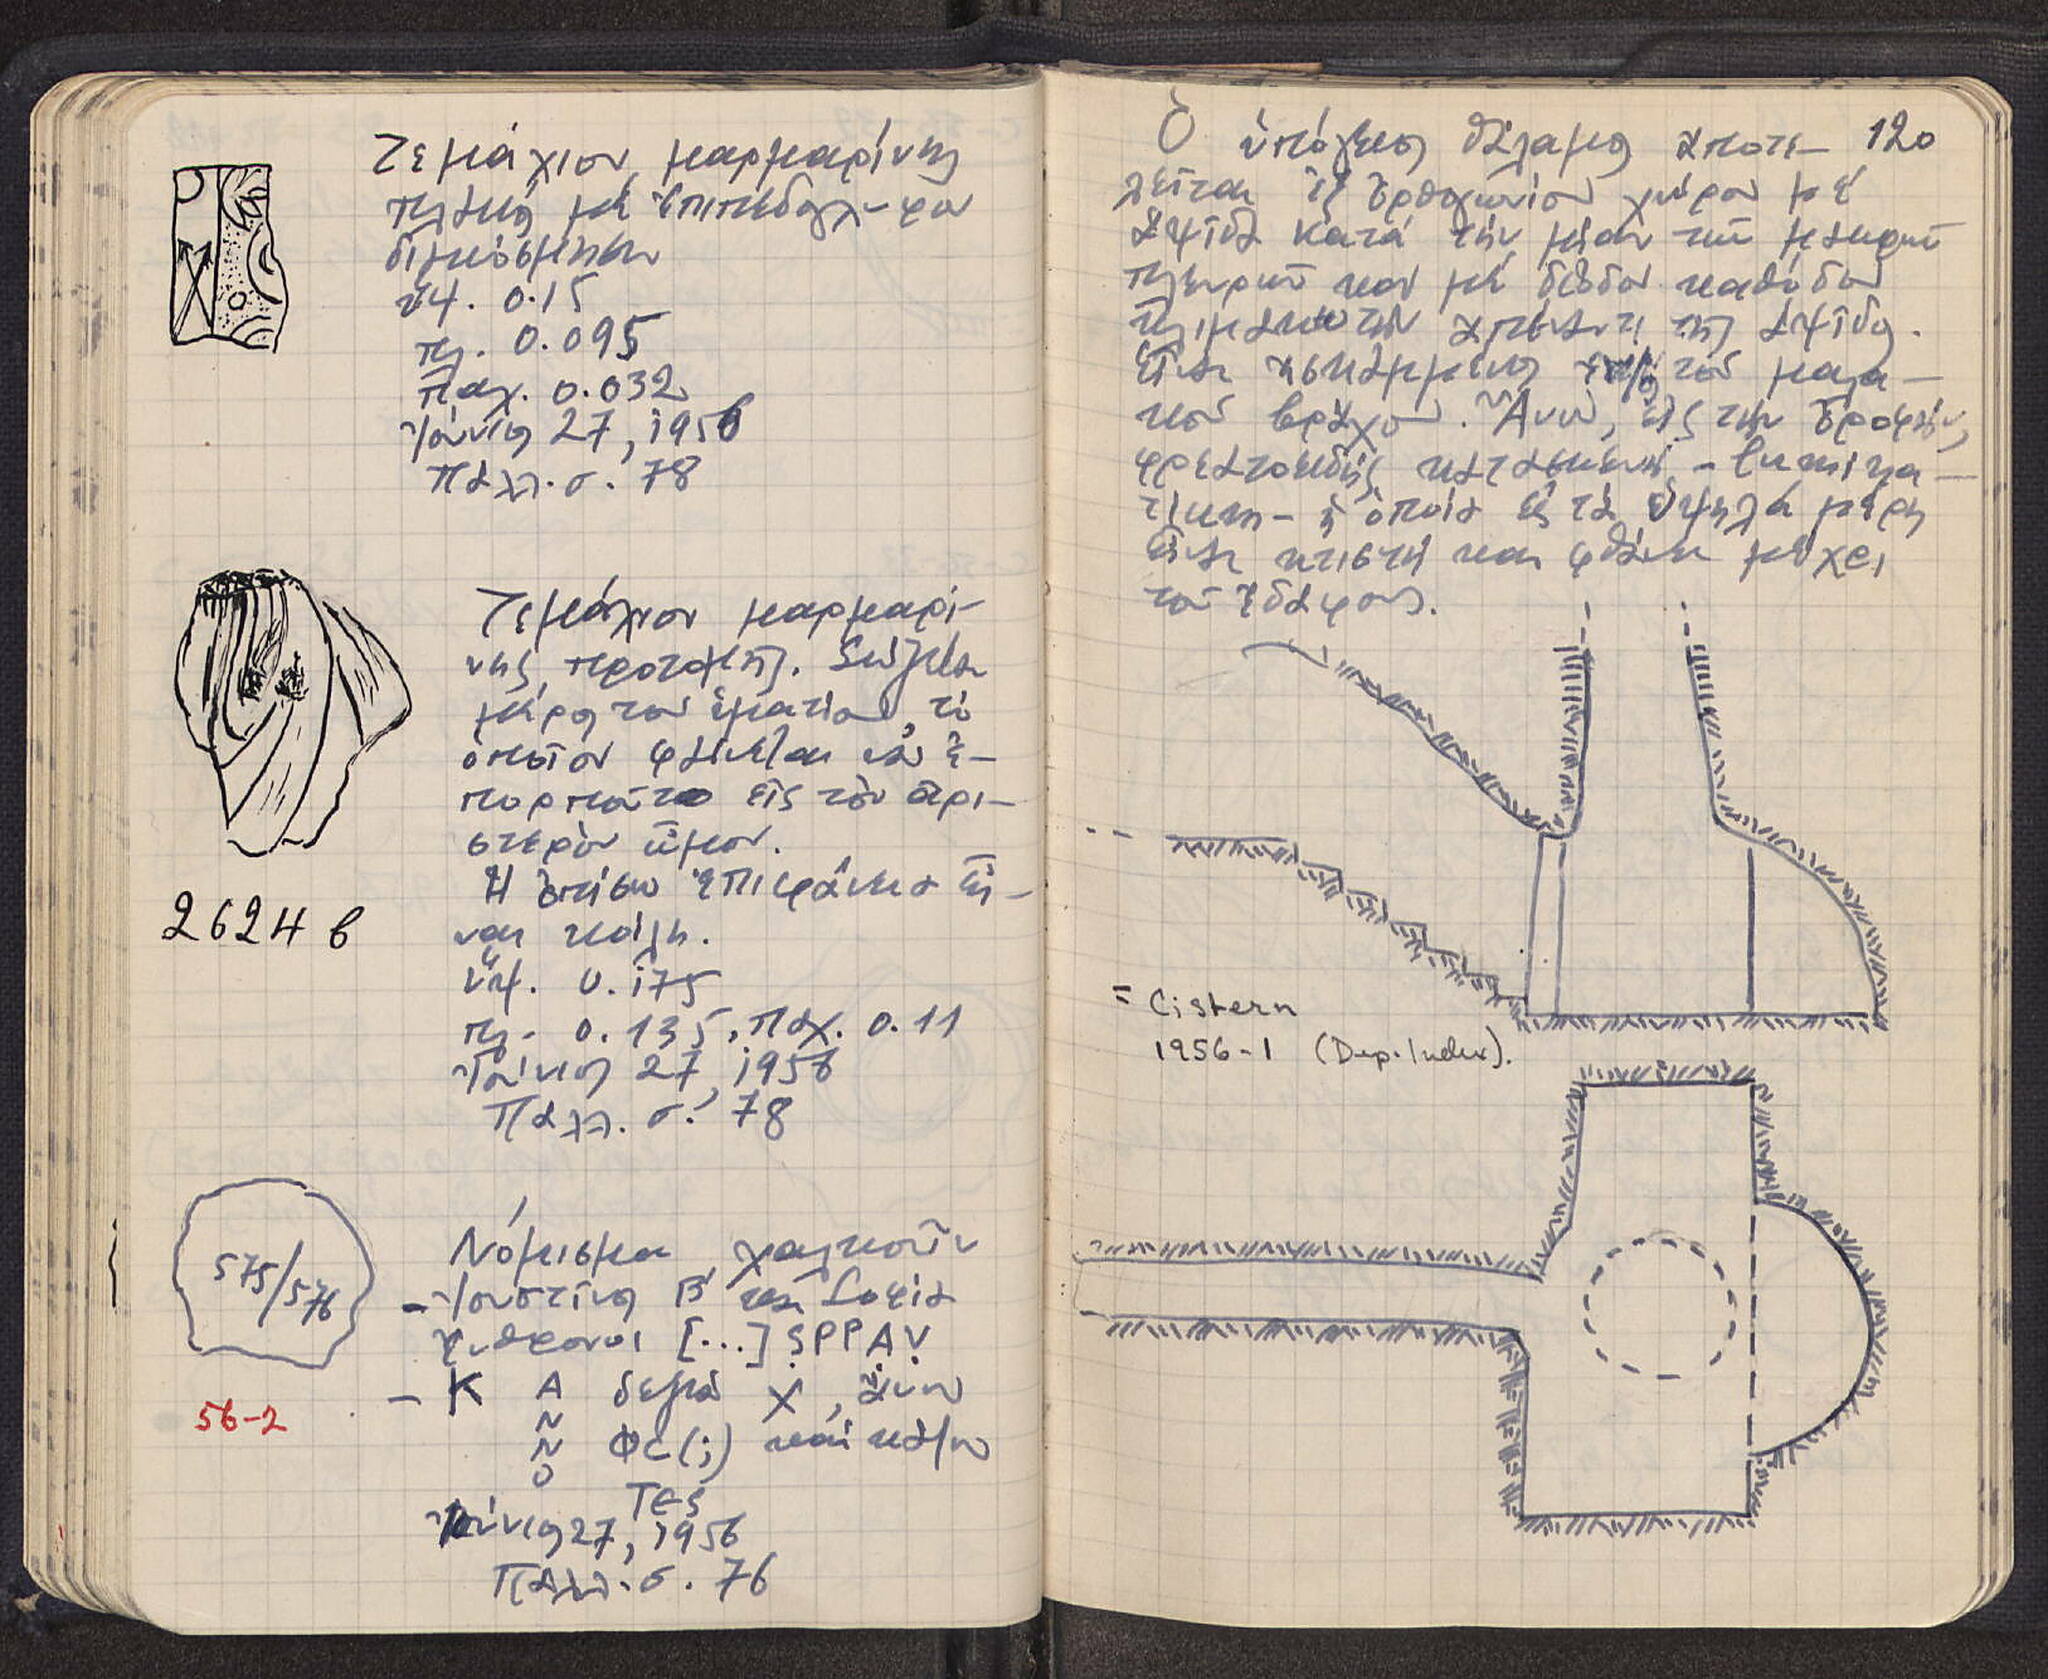 Τεμάχιον μαρμαρίνης
πλακός μέ ἐπιπεδόγλυφον
διακόσμησιν
ὕψ. 0.15
πλ. 0.095
παχ. 0.032
Ἰούνιος 27, 1956
Παλλ. σ. 78
Τεμάχιον μαρμαρί-
νης προτομῆς. Σώζεται
μέρος τοῦ ἱματίου, τό
ὁποῖον φαίνεται νά ἐ-
πορποῦτο εἰς τὸν ἀρι-
στερὸν ὦμον.
Ἡ ὀπίσω ἐπιφάνεια εἶ-
ναι κοίλη.
2624 β
ὕψ. 0.175
πλ. 0.135, παχ. 0.11
Ἰούνιος 27, 1956
Παλλ. σ. 78
575/576
Νόμισμα χαλκοῦν
- Ἰουστῖνος Β΄ καί Σοφία
ἔνθρονοι [...] SPPAV
- Κ Α δεξιά Χ, ἄνω
Ν
Ν ΦC(;) καί κάτω
Ο
ΤЄS
56-2
Ἰούνιος 27, 1956
Παλλ. σ. 76
120
Ὁ ὑπόγειος θάλαμος ἀποτε-
λεῖται ἐξ ὀρθογωνίου χώρου μέ
ἀψῖδα κατά τήν μίαν τῶν μακρῶν
πλευρῶν καί μέ δίοδον καθόδου
κλιμακωτήν ἀπέναντι τῆς ἀψῖδος.
Εἶναι ἐσκαμμένος τοῦ μαλα-
κοῦ βράχου. Ἄνω, εἰς τήν ὀροφήν,
φρεατοειδής κατασκευή -
ἡ ὁποία εἰς τά ὑψηλά μέρη
εἶναι κτιστή καί φθάνει μέχρι
τοῦ ἐδάφους.
= Cistern
1956-1 (Dep. Index).